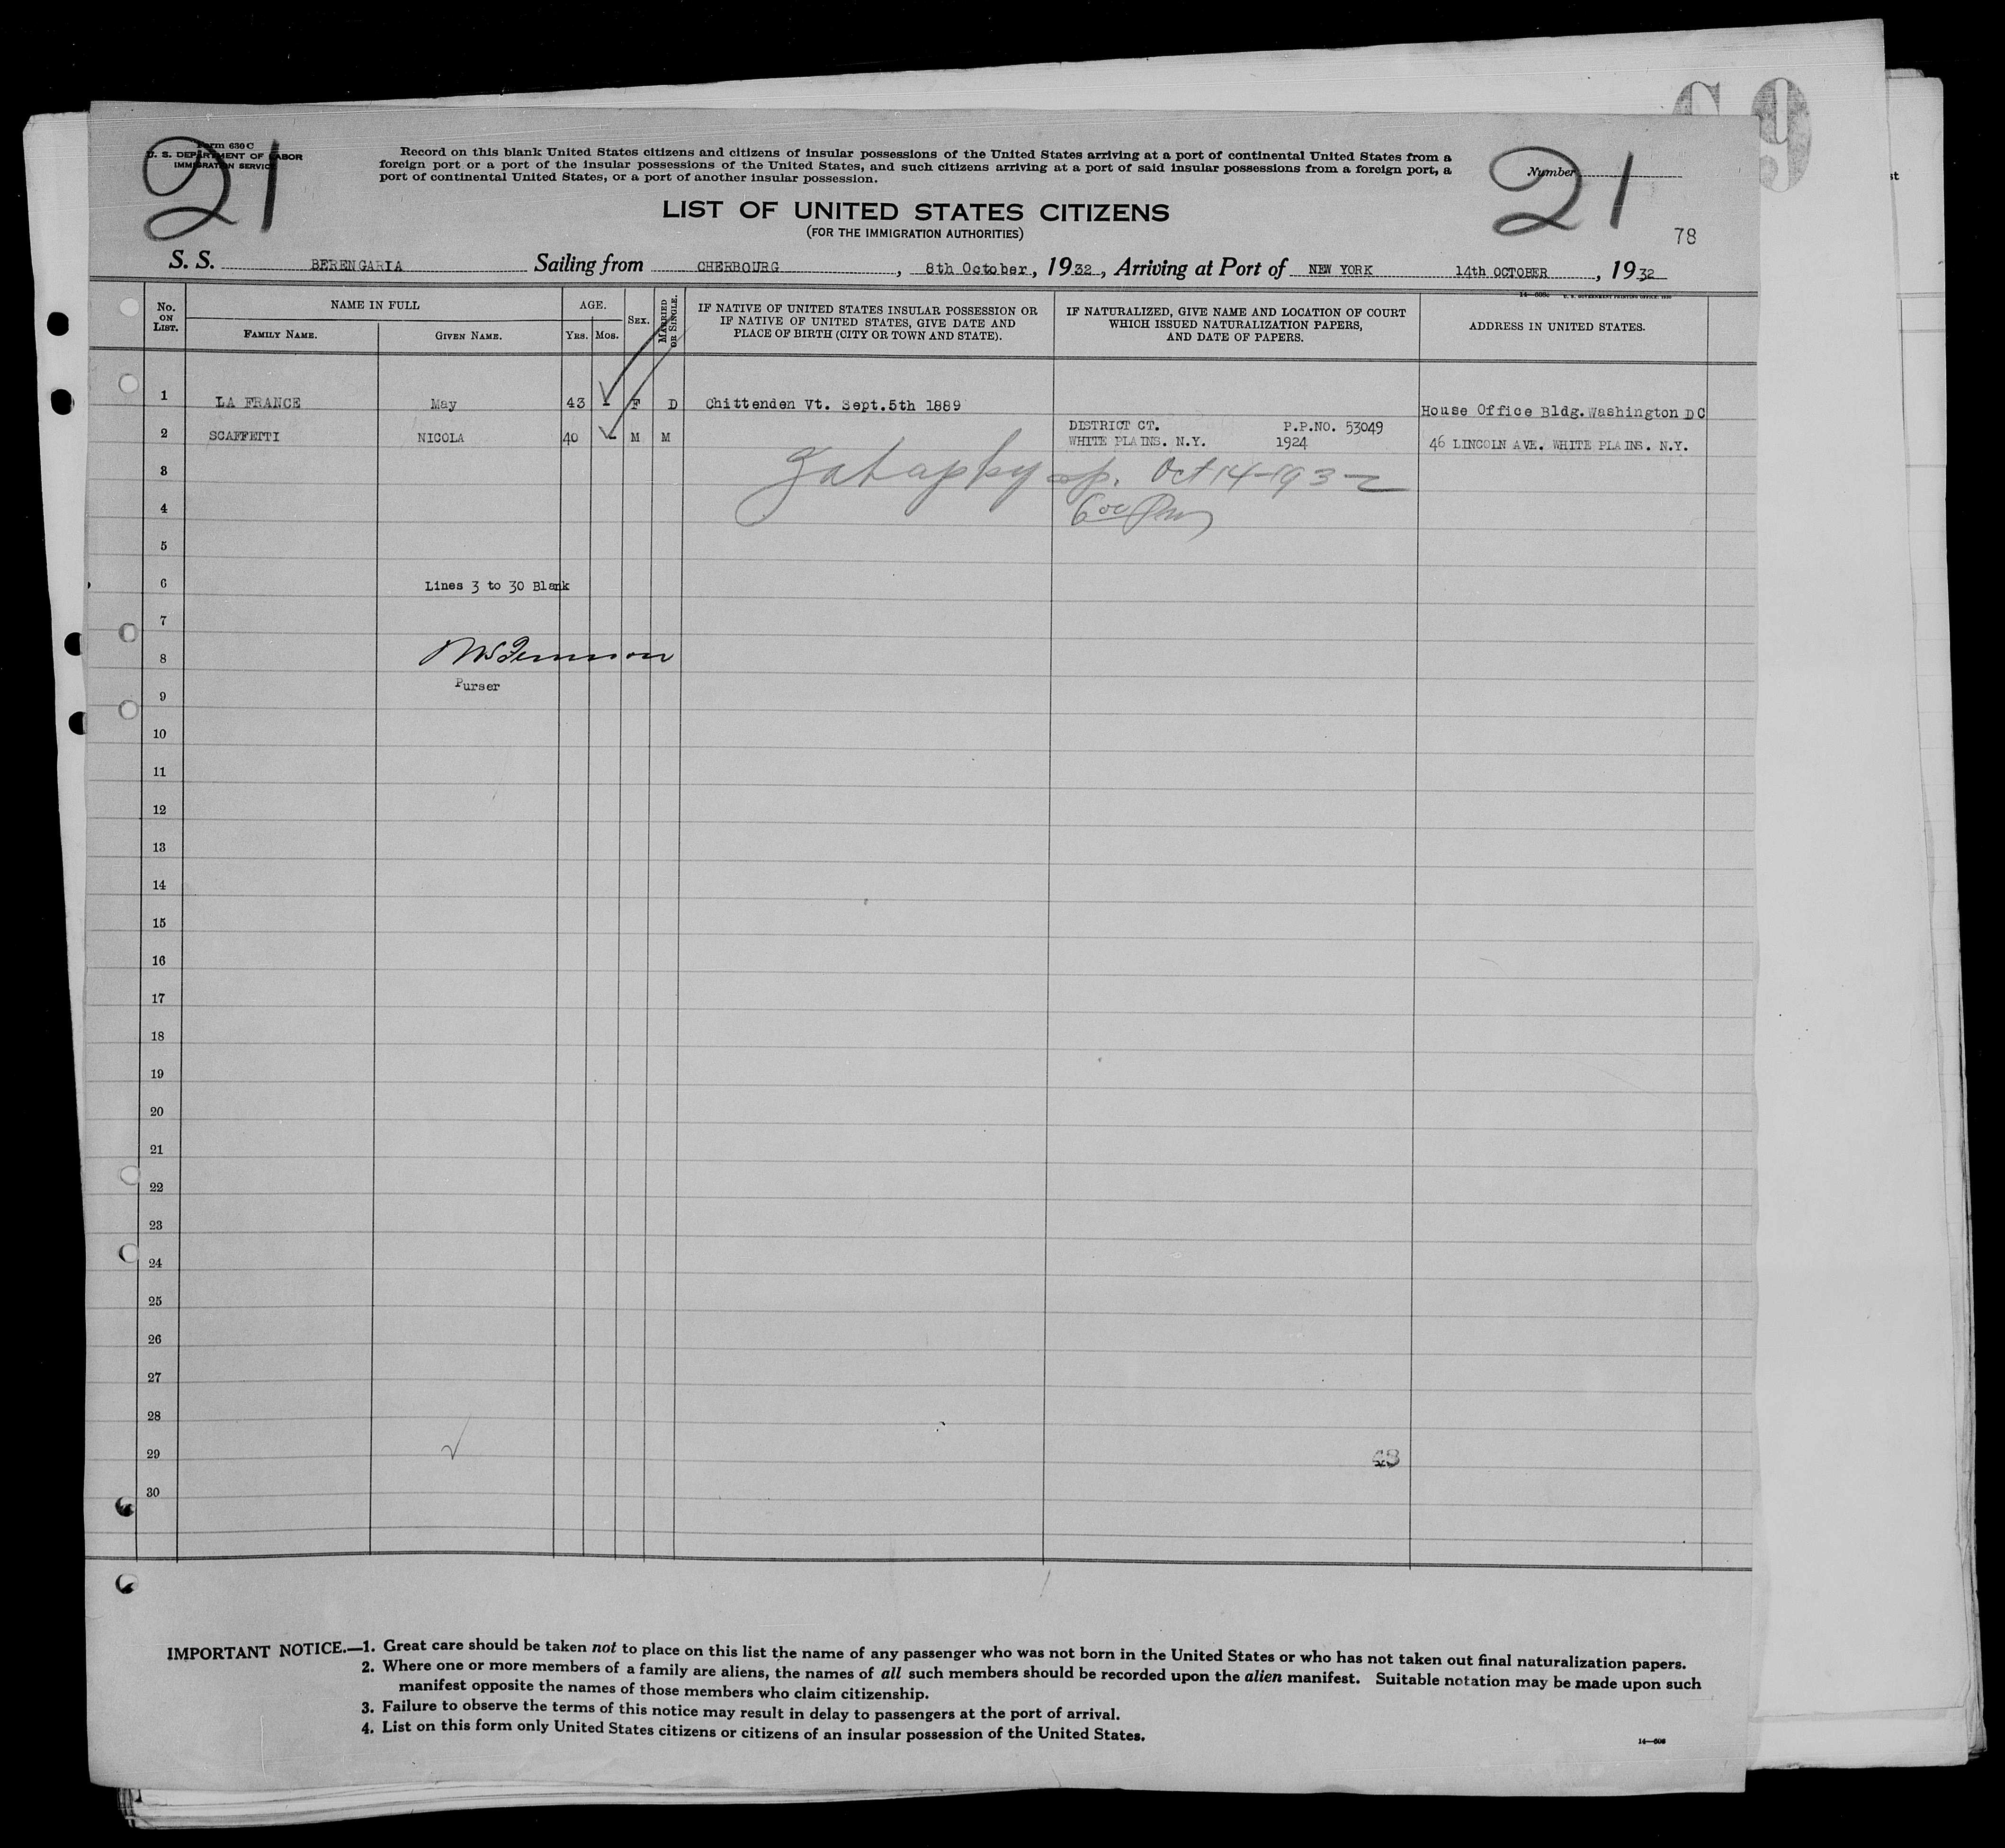 69
st
21
Form 630 C
U. S. DEPARTMENT OF LABOR
IMMIGRATION SERVICE
Record on this blank United States citizens and citizens of insular possessions of the United States arriving at a port of continental United States from a
foreign port or a port of the insular possessions of the United States, and such citizens arriving at a port of said insular possessions from a foreign port, a
port of continental United States, or a port of another insular possession.
Number
21
LIST OF UNITED STATES CITIZENS
(FOR THE IMMIGRATION AUTHORITIES)
78
S. S. BERENGARIA Sailing from CHERBOURG, 8th October, 1932, Arriving at Port of NEW YORK 14th OCTOBER, 1932
No. ON LIST.
NAME IN FULL
FAMILY NAME. GIVEN NAME.
AGE.
YRS. MOS.
SEX.
MARRIED OR SINGLE.
IF NATIVE OF UNITED STATES INSULAR POSSESSION OR
IF NATIVE OF UNITED STATES, GIVE DATE AND
PLACE OF BIRTH (CITY OR TOWN AND STATE).
IF NATURALIZED, GIVE NAME AND LOCATION OF COURT
WHICH ISSUED NATURALIZATION PAPERS,
AND DATE OF PAPERS.
ADDRESS IN UNITED STATES.
1 LA FRANCE May 43 - F D Chittenden Vt. Sept.5th 1889 House Office Bldg.Washington DC
DISTRICT CT. P.P.NO. 53049
2 SCAFFETTI NICOLA 40 - M M WHITE PLAINS. N.Y. 1924 46 LINCOLN AVE. WHITE PLAINS. N.Y.
3 Oct 14-1932
4 6 00 Pm
5
6 Lines 3 to 30 Blank
7
8
Purser
9
10
11
12
13
14
15
16
17
18
19
20
21
22
23
24
25
26
27
28
29
30
IMPORTANT NOTICE.—1. Great care should be taken not to place on this list the name of any passenger who was not born in the United States or who has not taken out final naturalization papers.
2. Where one or more members of a family are aliens, the names of all such members should be recorded upon the alien manifest. Suitable notation may be made upon such
manifest opposite the names of those members who claim citizenship.
3. Failure to observe the terms of this notice may result in delay to passengers at the port of arrival.
4. List on this form only United States citizens or citizens of an insular possession of the United States.